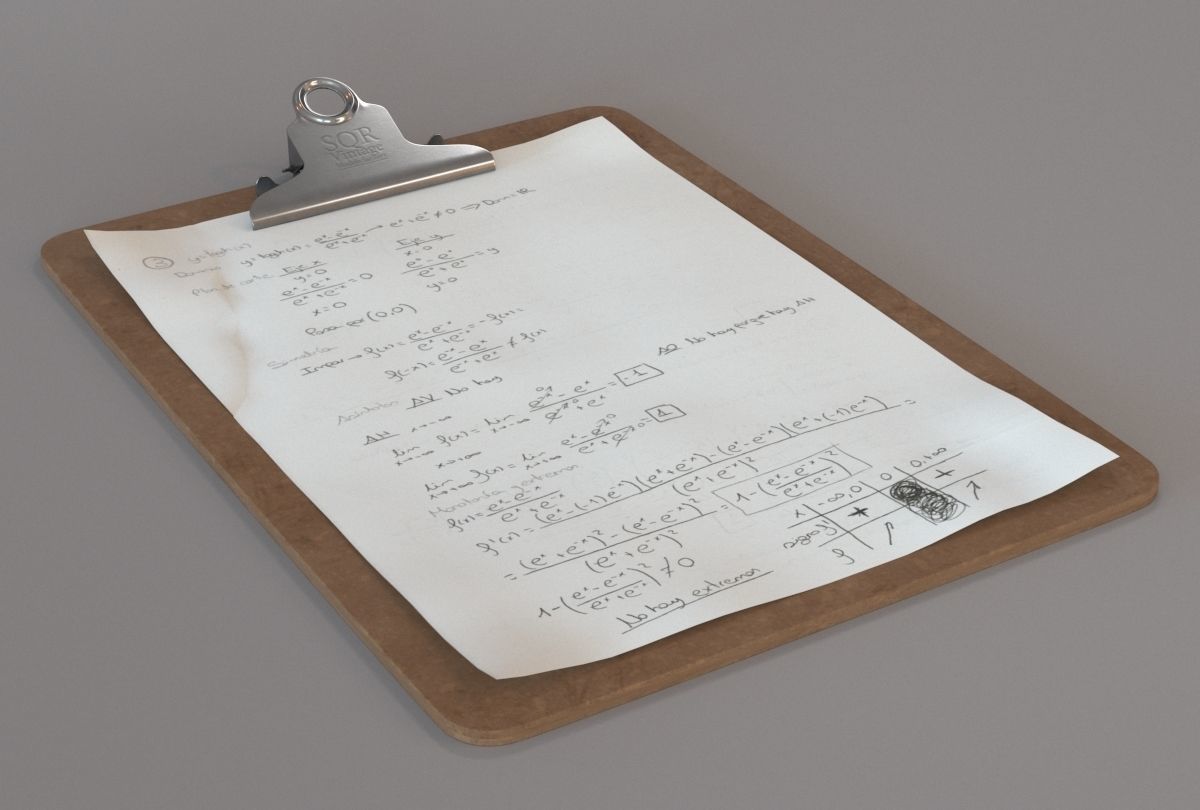 SQR
Vintage
③ y=tgh(x)
Dominio y=tgh(x)= (eˣ-e⁻ˣ)/(eˣ+e⁻ˣ) → eˣ+e⁻ˣ≠0 ⇒ Dom=ℝ
Eje x
y=0
(eˣ-e⁻ˣ)/(eˣ+e⁻ˣ)=0
x=0
Eje y
x=0
(eˣ-e⁻ˣ)/(eˣ+e⁻ˣ)=y
y=0
Pasa por (0,0)
Simetría
Impar → f(x)= (eˣ-e⁻ˣ)/(eˣ+e⁻ˣ) = -f(x)=
f(-x)= (e⁻ˣ-eˣ)/(eˣ+e⁻ˣ) ≠ f(x)
AV No hay
AO No hay porque hay AH
AH x→-∞
lim x→-∞ f(x)= lim x→-∞ (eˣ-e⁻ˣ)/(eˣ+e⁻ˣ) = -1
x→+∞
lim x→+∞ f(x)= lim x→+∞ (eˣ-e⁻ˣ)/(eˣ+e⁻ˣ) = 1
Monotonía y extremos
f(x)= (eˣ-e⁻ˣ)/(eˣ+e⁻ˣ)
f'(x)= ((eˣ-(-1)e⁻ˣ)(eˣ+e⁻ˣ)-(eˣ-e⁻ˣ)(eˣ+(-1)e⁻ˣ))/(eˣ+e⁻ˣ)² =
= ((eˣ+e⁻ˣ)²-(eˣ-e⁻ˣ)²)/(eˣ+e⁻ˣ)² = 1-((eˣ-e⁻ˣ)/(eˣ+e⁻ˣ))²
1-((eˣ-e⁻ˣ)/(eˣ+e⁻ˣ))² ≠ 0
No hay extremos
x | -∞,0 | 0 | 0,+∞
signo y' | + | +
f | ↗ | ↗